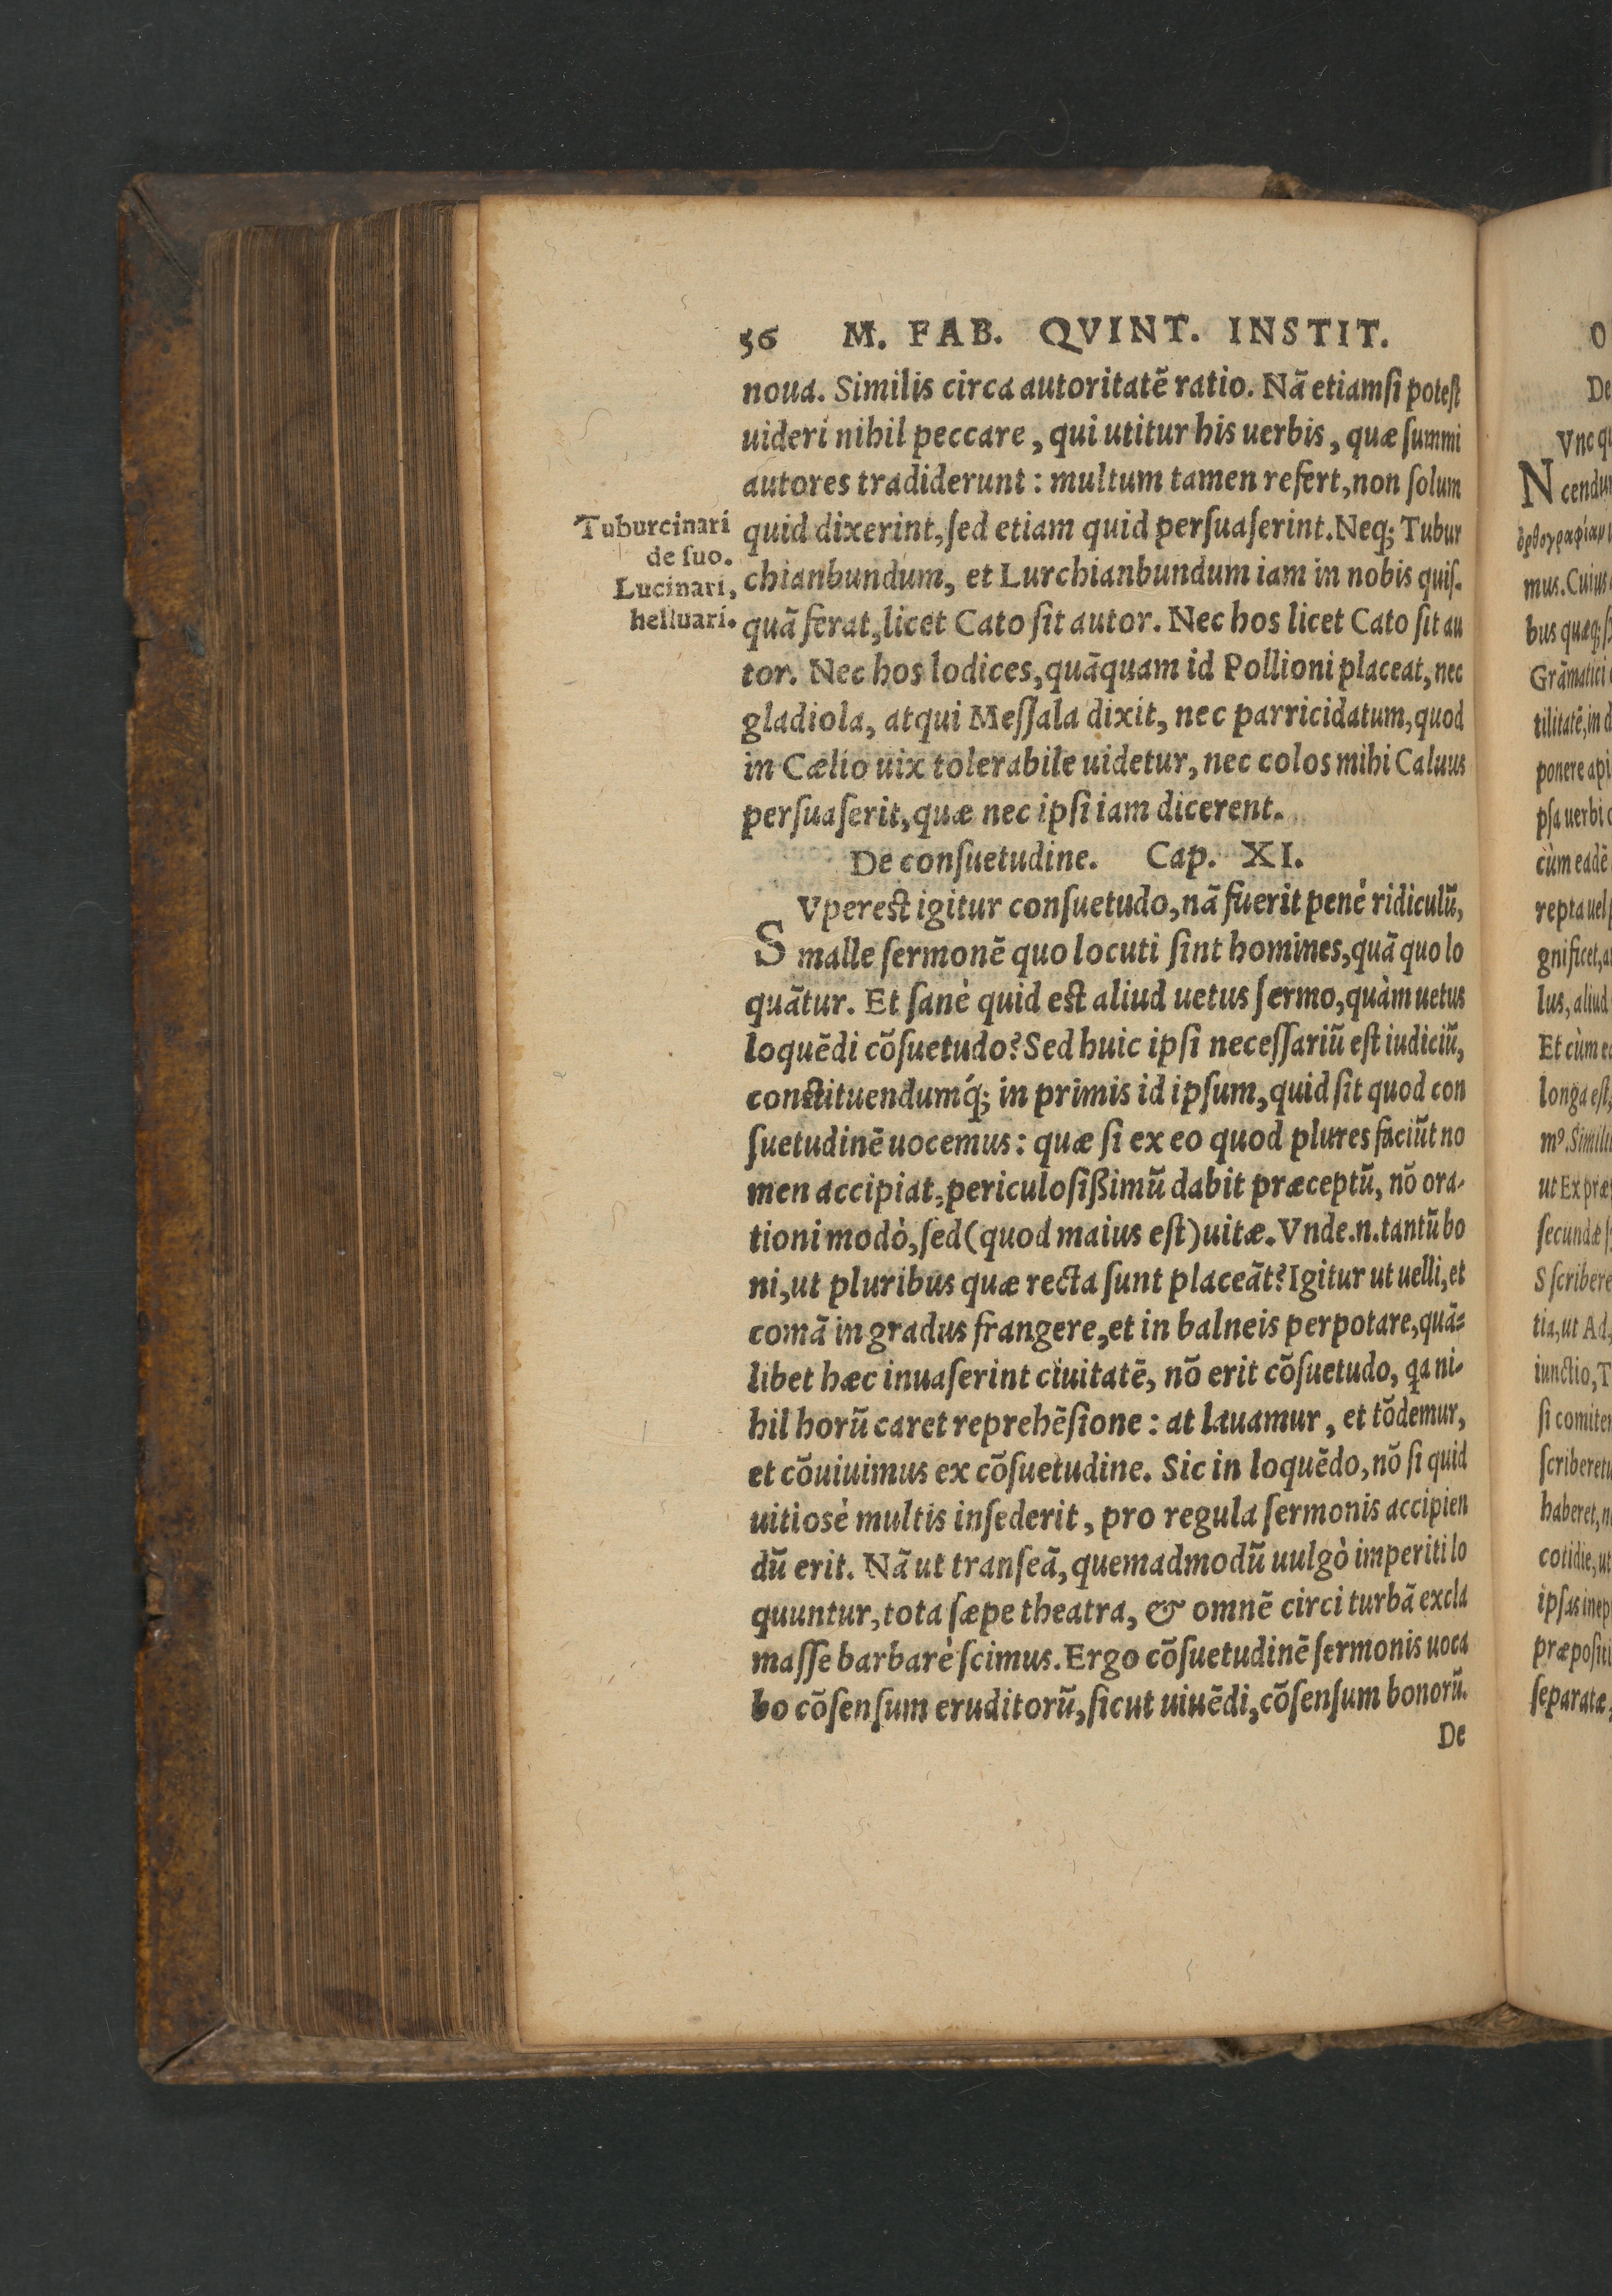 56 M. FAB. QVINT. INSTIT.
noua. Similis circa autoritatē ratio. Nā etiamſi poteſt
uideri nihil peccare, qui utitur his uerbis, quæ ſummi
autores tradiderunt: multum tamen refert, non ſolum
Tuburcinari
de ſuo.
Lucinari,
helluari.
quid dixerint, ſed etiam quid perſuaſerint. Neq; Tubur
chianbundum, et Lurchianbundum iam in nobis quiſ-
quā ferat, licet Cato ſit autor. Nec hos licet Cato ſit au
tor. Nec hos lodices, quāquam id Pollioni placeat, nec
gladiola, atqui Meſſala dixit, nec parricidatum, quod
in Cælio uix tolerabile uidetur, nec colos mihi Caluus
perſuaſerit, quæ nec ipſi iam dicerent.
De conſuetudine. Cap. XI.
SVpereſt igitur conſuetudo, nā fuerit penè ridiculū,
malle ſermonē quo locuti ſint homines, quā quo lo
quātur. Et ſanè quid eſt aliud uetus ſermo, quàm uetus
loquēdi cōſuetudo? Sed huic ipſi neceſſariū eſt iudiciū,
conſtituendumq́; in primis id ipſum, quid ſit quod con
ſuetudinē uocemus: quæ ſi ex eo quod plures faciūt no
men accipiat, periculoſißimū dabit præceptū, nō ora-
tioni modò, ſed (quod maius eſt) uitæ. Vnde.n.tantū bo
ni, ut pluribus quæ recta ſunt placeāt? Igitur ut uelli, et
comā in gradus frangere, et in balneis perpotare, quā-
libet hæc inuaſerint ciuitatē, nō erit cōſuetudo, qa ni-
hil horū caret reprehēſione: at lauamur, et tōdemur,
et cōuiuimus ex cōſuetudine. Sic in loquēdo, nō ſi quid
uitiosè multis inſederit, pro regula ſermonis accipien
dū erit. Nā ut tranſeā, quemadmodū uulgò imperiti lo
quuntur, tota ſæpe theatra, & omnē circi turbā excla
maſſe barbarè ſcimus. Ergo cōſuetudinē ſermonis uoca
bo cōſenſum eruditorū, ſicut uiuēdi, cōſenſum bonorū.
De
O
De
Vnc qu
N cendum
mus. Cuius
bus quæq; ſ
Grāmatici
tilitatē, in d
ponere api
pſa uerbi
cùm eadē
repta uel
gnificet, a
lus, aliud
Et cùm e
longa eſt,
m9. Simili
ut Ex præ
ſecundæ ſ
S ſcribere
tia, ut Ad,
iunctio, T
ſi comiter
ſcriberetu
haberet, n
cotidie, ut
ipſas inep
præpoſiti
ſeparatæ,